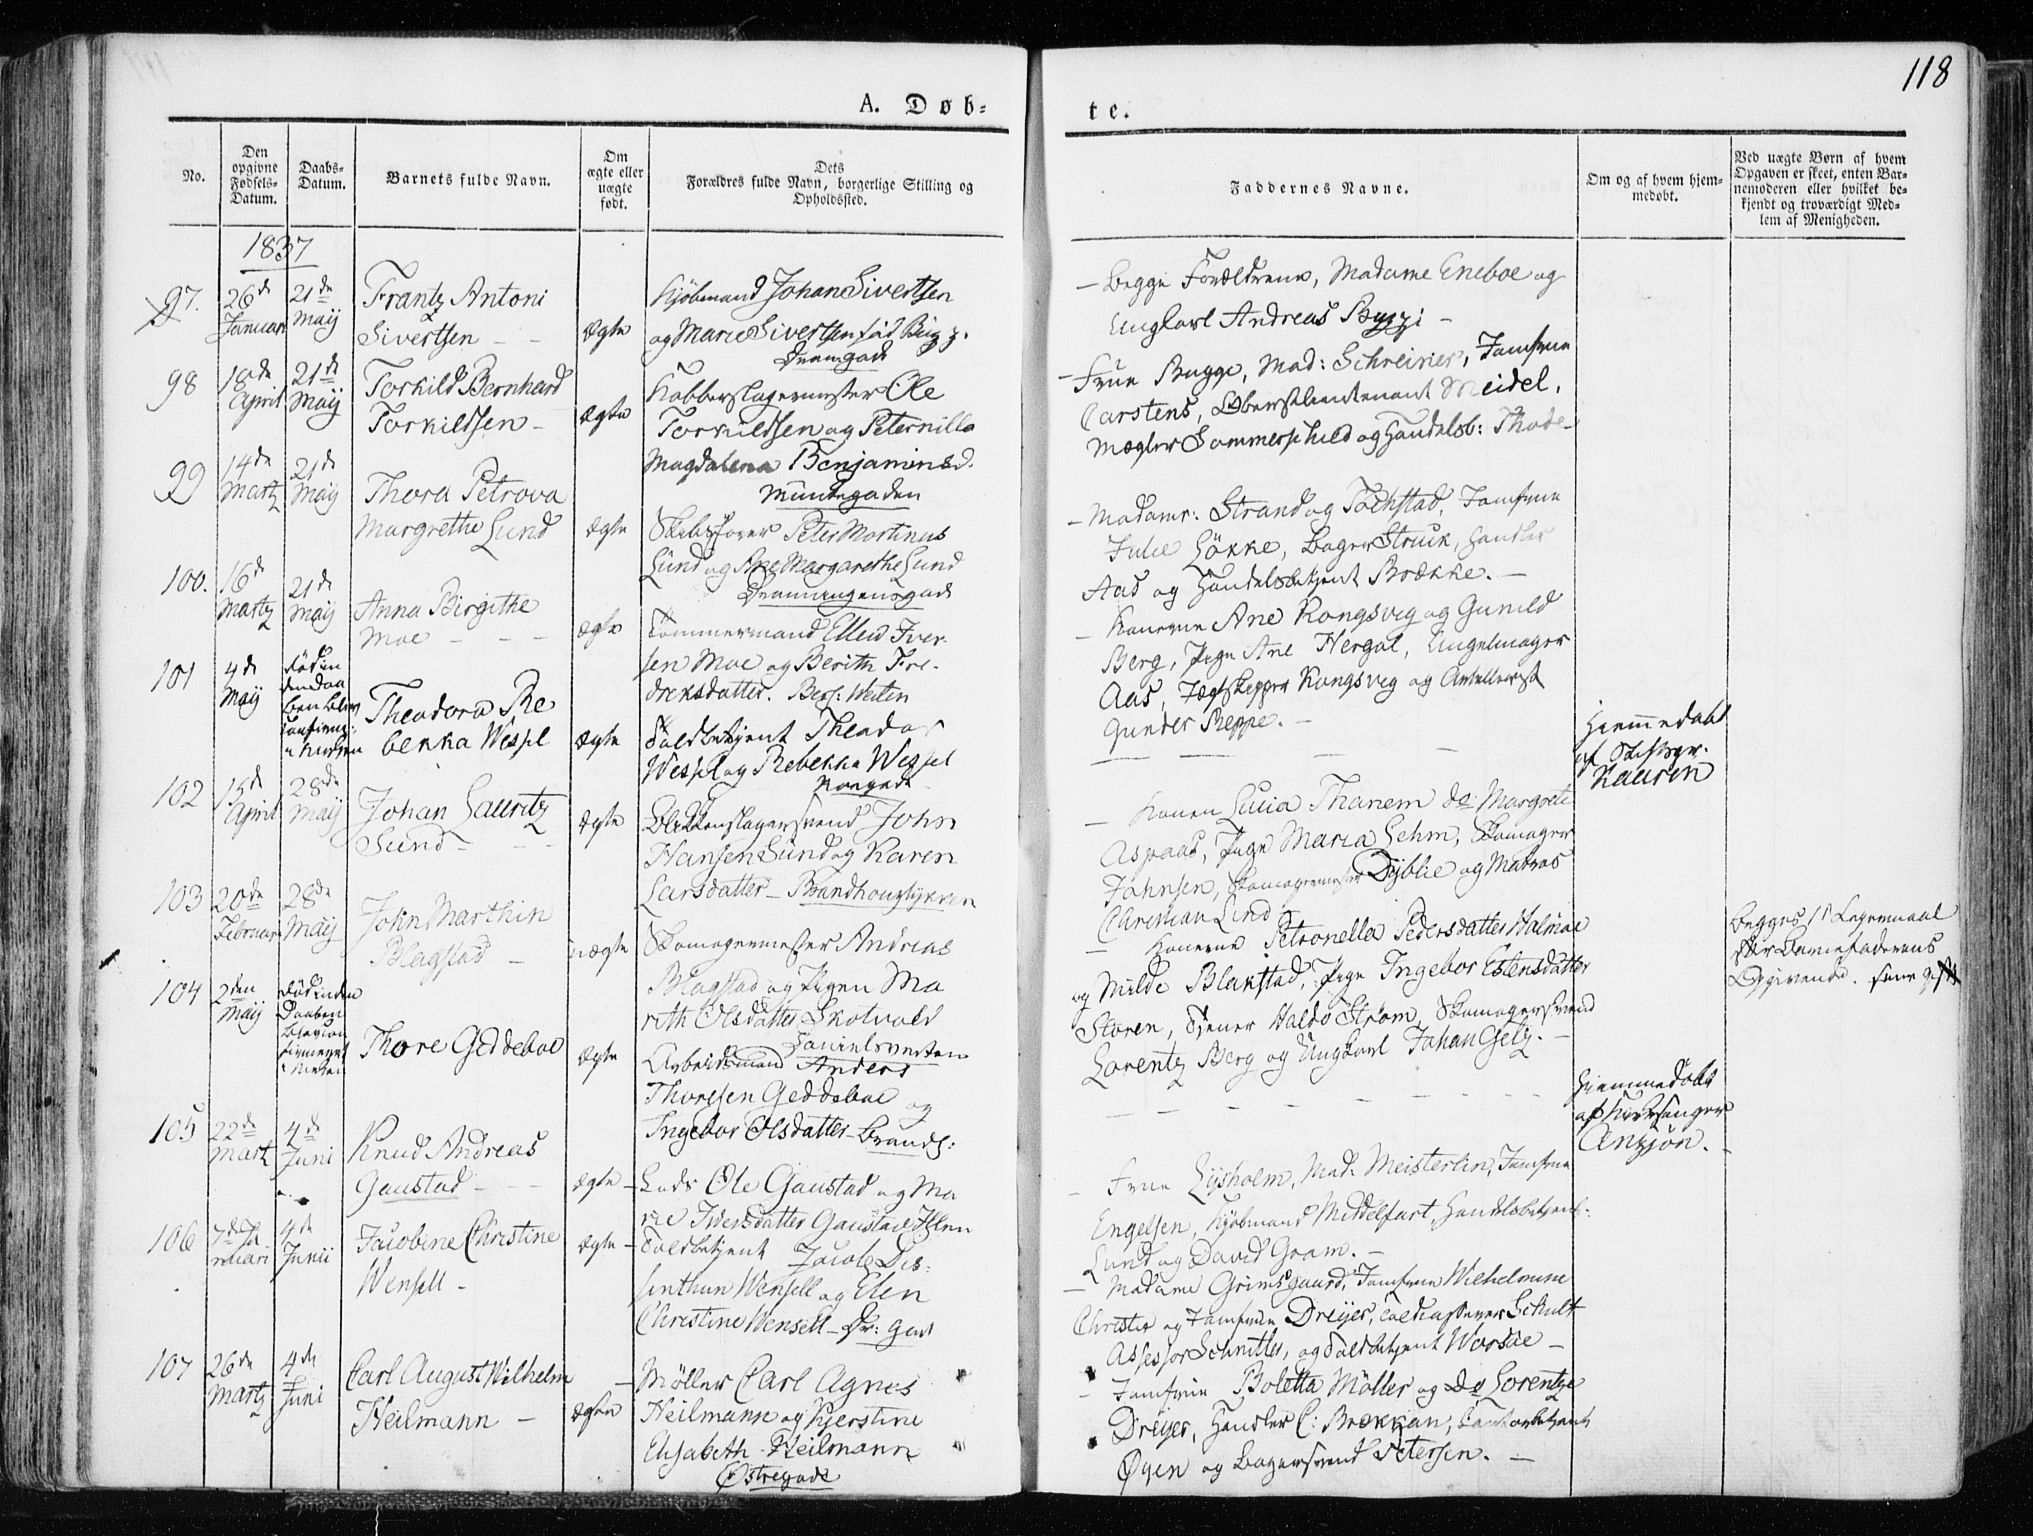 118
A. Døb-
te.
No.
Den opgivne Fødsels-Datum.
Daabs-Datum.
Barnets fulde Navn.
Om ægte eller uægte født.
Dets Forældres fulde Navn, borgerlige Stilling og Opholdssted.
Faddernes Navne.
Om og af hvem hjem-medøbt.
Ved uægte Børn af hvem Opgaven er skeet, enten Bar-nemoderen eller hvilket be-kjendt og troværdigt Med-lem af Menigheden.
1837
97. 26d Januar 21de Maij Frantz Antoni
Sivertsen ægte
Kjöbmand Johan Sivertsen
og Marie Sivertsen föd Bugge.
Dramgade
Begge Forældrene, Madame Eneboe og
Ungkarl Andreas Bygge
98 18de April 21de Maij Torkild Bernhard
Torkildsen ægte
Kobberslagermester Ole
Torkildsen og Peternilla
Magdalena Benjaminsd.
Munkegaden
Frue Bugge, Mad: Schreiner, Jomfrue
Carstens, Oberstlieutenant Meidel,
Mægler Sommerschield og Handelsb: Thode
99 14de Martz 21de Maij Thora Petrova
Margrethe Lund ægte
Peter Martinus
Lund og Ane Margarethe Lund
Dronningensgade
Madame: Strand og Jomfrue
Julie Lökke, Bager Struck, Handler
Aas og Handelsbetjent Brække.
100. 16d Martz 21de Maij Anna Birgithe
Moe ægte
Tömmermand Ellen Iver-
sen Moe og Berith Fre-
driksdatter.
Konerne Ane Kongsveg og Gunild
Berg, Pige Ane Hergot,
Aas, Kongsveg og
Gunder Reppe.
101 4de Maij
Theodora Re
bekka Wessel ægte
Toldbetjent Theodor
Wessel og Rebekka Wessel
Kongsgade
Hjemmedöbt
af
Kauren
102 15d April 28de Maij Johan Lauritz
Sund ægte
Blikkenslagersvend John
Hansen Sund og Karen
Larsdatter
Konen Lucia Thanem do: Margrete
Aspaas, Pige Maria Lehm, Skomager
Johnsen, Skomagermester Dyblie og Matros
Christian Lind
103 20de Februar 28de Maij John Marthin
Blagstad uægte
Skomagermester Andreas
Blagstad og Pigen Ma
rith Olsdatter Skotvold
Konerne Petronella Pedersdatter
og Milde Blakstad, Pige Ingebor Estensdatter
Storen, Tjener Haldo Ström, Skomagersvend
Lorentz Berg og Ungkarl Johan
Begges 1ste Leyermaal
efter Barnefaderens
Opgivende.
104 2den Maij
Thore Geddeboe ægte
Arbeidsmand Anders
Thoresen Geddeboe og
Ingebor Olsdatter
Hjemmedöbt
af Kirkesanger
105 22de Martz 4de Juni Knud Andreas
Gaustad ægte
Ole Gaustad og Ma
rie Iversdatter Gaustad Ihlen
Frue Lysholm, Mad: Meisterlin, Jomfrue
Engelsen, Kjöbmand Middelfart, Handelsbetjent:
Lund og David Gram.
106 7de Januari 4de Junii Jacobine Christine
Wensell ægte
Toldbetjent Jacob Dis-
sinthun Wensell og Elen
Christine Wensell - Dr: gade
Madame Grimsgaard, Jomfrue Wilhelmine
Christie og Jomfrue Dreyer, Schult
Assessor Schnitler, og Toldbetjent Worsöe
107 26de Martz 4de Juni Carl August Wilhelm
Heilmann ægte
Möller Carl Agnes
Heilmann og Kjerstine
Elisabeth Heilmann
Östregade
Jomfrue Boletta Möller og Do Lorentze
Dreyer, Handler C: Brækkan,
Öyen og Bagersvend Petersen.